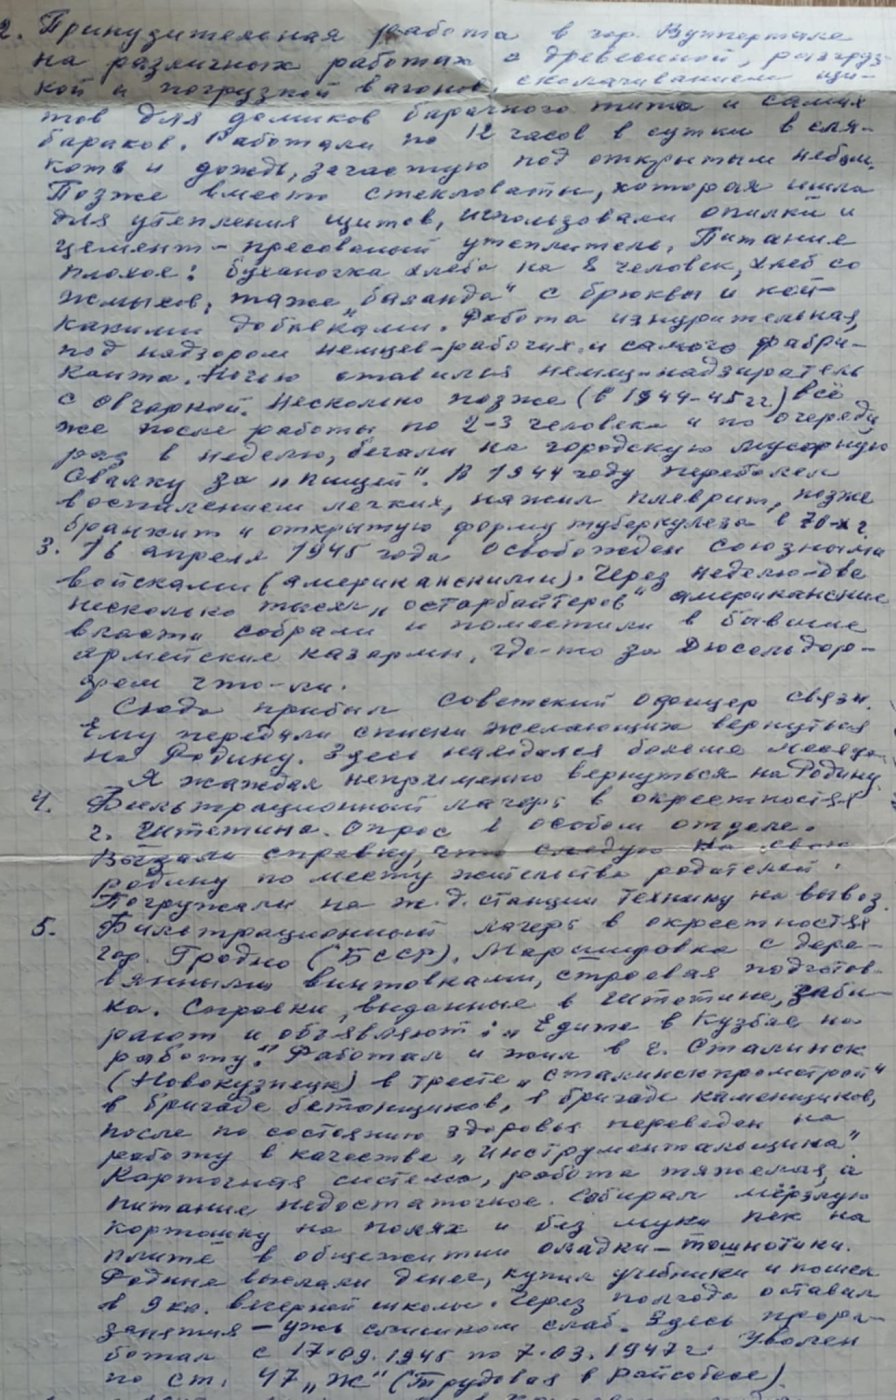 2. Принудительная работа в гор. Вуппертале
на различных работах с древесиной, разгруз-
кой и погрузкой вагонов, сколачиванием щи-
тов для домиков барачного типа и самих
бараков. Работали по 12 часов в сутки в сля-
коть и дождь, зачастую под открытым небом.
Позже вместо стекловаты, которая шла
для утепления щитов, использовали опилки и
цемент-пресованый утеплитель. Питание
плохое: буханочка хлеба на 8 человек, хлеб со
жмыхов, также "баланда" с брюквы и кой-
какими добавками. Работа изнурительная,
под надзором немцев-рабочих и самого фабри-
канта. Ночью ставился немец-надзиратель
с овчаркой. Несколько позже (в 1944-45 гг) всё
же после работы по 2-3 человека и по очереди,
раз в неделю, бегали на городскую мусорную
свалку за "пищей". В 1944 году переболел
воспалением легких, нажил плеврит, позже
бранхит и открытую форму туберкулеза в 70-х г.
3. 16 апреля 1945 года освобожден союзными
войсками (американскими). Через неделю-две
несколько тысяч "остарбайтеров" американские
власти собрали и поместили в бывшие
армейские казармы, где-то за Дюсельдор-
фом что-ли.
Сюда прибыл советский офицер связи.
Ему передали списки желающих вернуться
на Родину. Здесь находился больше месяца.
Я жаждал неприменно вернуться на Родину.
4. Фильтрационный лагерь в окрестностях
г. Штетина. Опрос в особом отделе.
Выдали справку, что следую на свою
родину по месту жительства родителей.
Погружали на ж.д. станции технику на вывоз.
5. Фильтрационный лагерь в окрестностях
гор. Гродно (БССР). Маршировка с дере-
вянными винтовками, строевая подготов-
ка. Справки, выданные в Штетине, заби-
рают и объявляют: "Едите в Кузбас на
работу". Работал и жил в г. Сталинск
(Новокузнецк) в тресте "Сталинскпромстрой"
в бригаде бетонщиков, в бригаде каменщиков,
после по состоянию здоровья переведен на
работу в качестве "инструментальщика".
Карточная система, работа тяжелая, а
питание недостаточное. Собирал мёрзлую
картошку на полях и без муки пек на
плите в общежитии оладки-тошнотики.
Родные выслали денег, купил учебники и пошел
в 9 кл. вечерней школы. Через полгода оставил
занятия - уж слишком слаб. Здесь прора-
ботал с 17.09.1945 по 7.03.1947 г. Уволен
по ст. 47 "Ж" (Трудовая в райсобесе)